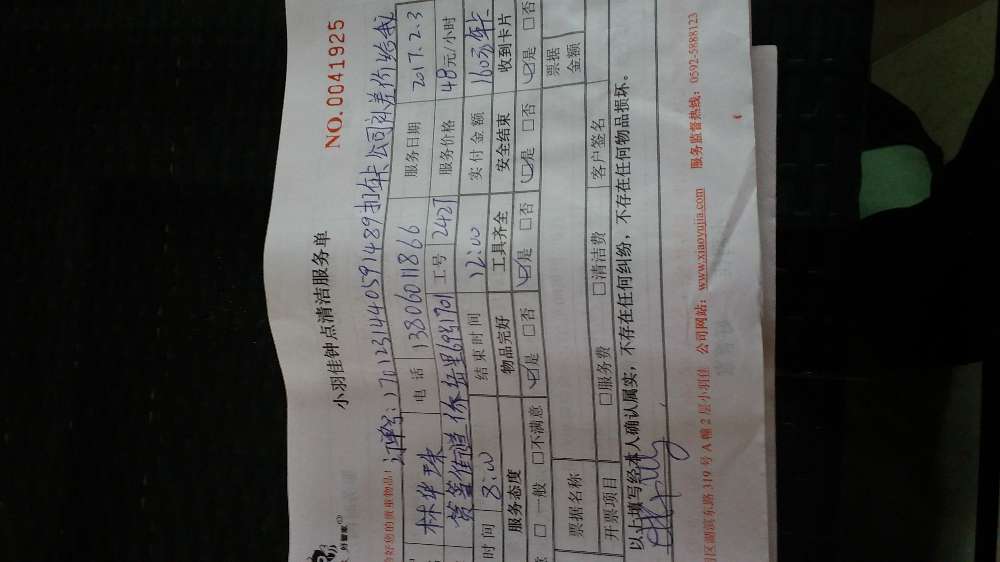 NO.0041925
好管家
小羽佳钟点清洁服务单
好您的贵重物品!
订单号:1701231440591489扣年卡公司补差价给我
林华珠 电话 13806011866 服务日期 2017.2.3
筼筜街道 岳里69号701 工号 2421 服务价格 48元/小时
时间 8:00 结束时间 12:00 实付金额 160元年卡
服务态度 物品完好 工具齐全 安全结束 收到卡片
意 □一般 □不满意 ☑是 □否 ☑是 □否 ☑是 □否 ☑是 □否
票据名称 票据金额
开票项目 □服务费 □清洁费 客户签名
以上填写经本人确认属实,不存在任何纠纷,不存在任何物品损坏。
明区湖滨东路319号A幢2层小羽佳 公司网站:www.xiaoyujia.com 服务监督热线:0592-5888123